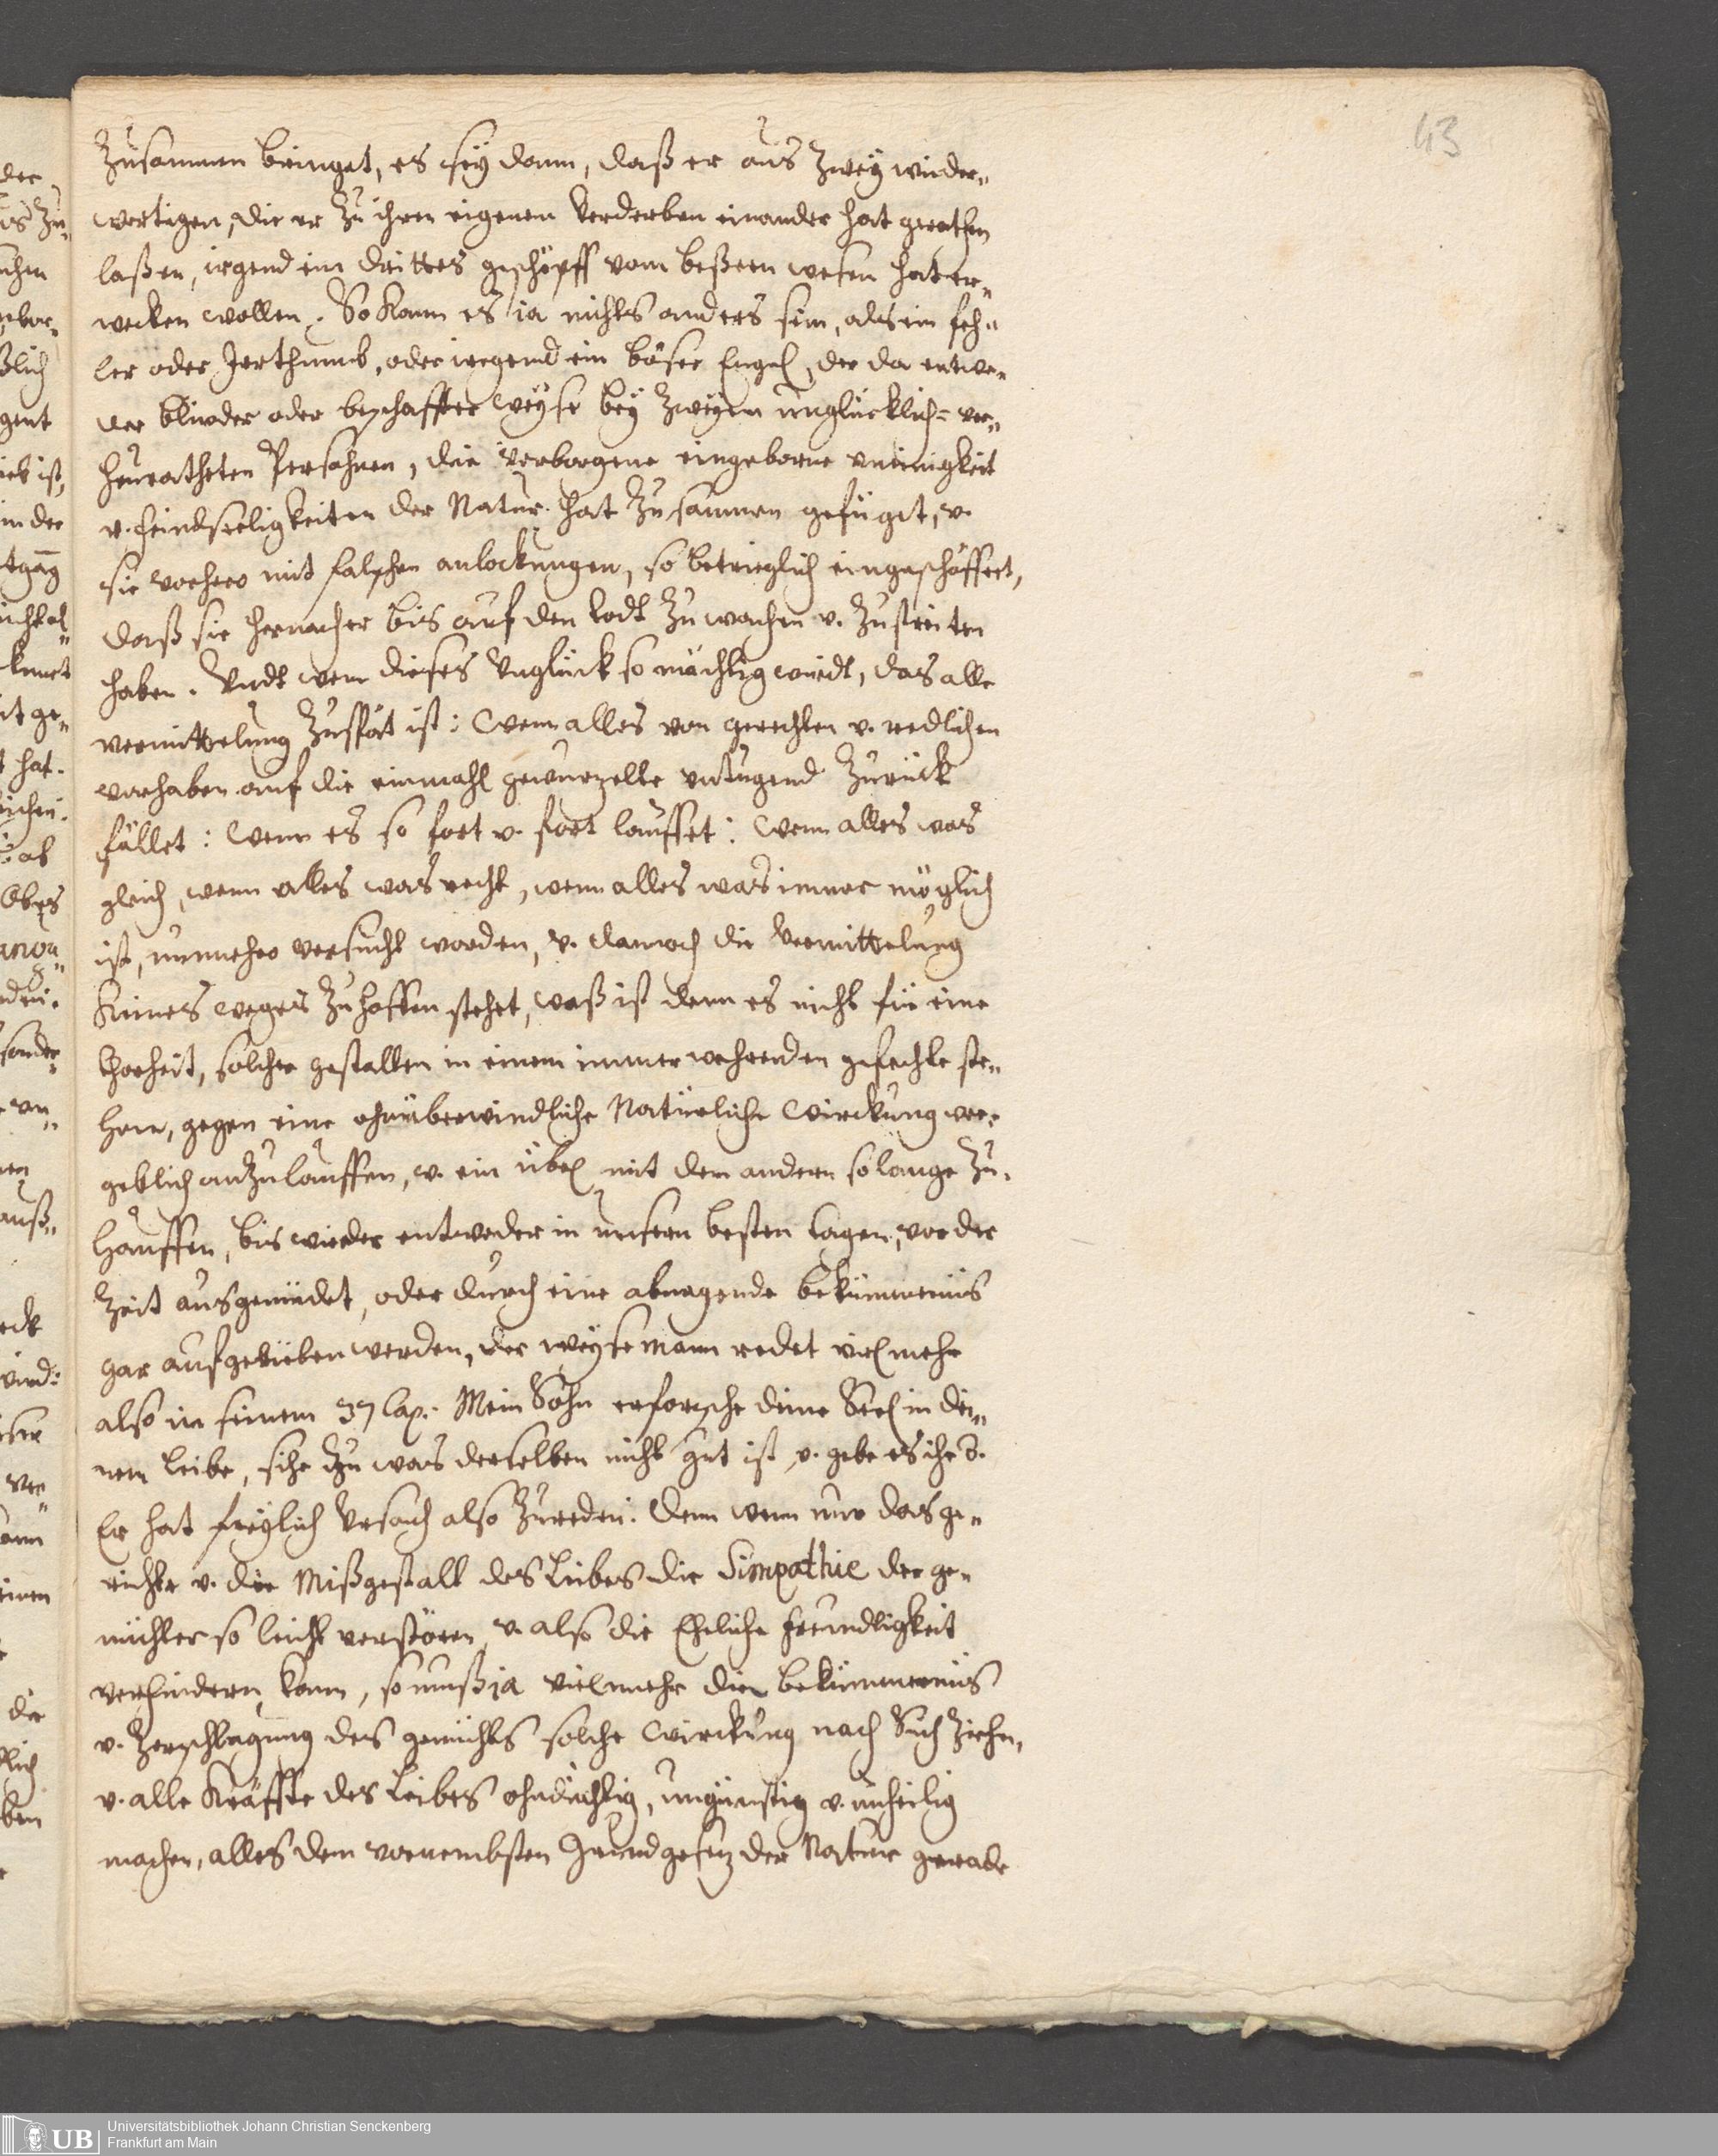 43
Zusammen bringet, es seÿ dann, daß er aus Zweÿ wieder„
wertigen, die er Zu ihren eigenem Verderben einander hat
laßen, irgend ein drittes geschöpff vom beßeren wesen hat er„
wecken wollen. So kann es ia nichts anders sein, als ein feh„
ler oder Jerthumb, oder irgend ein böser Engel, der da entwe„
der blinder oder weÿse beÿ Zweÿen unglücklich= ver„
heuratheten Persohnen, die verborgene eingeborne uneinigkeit
v. feindseeligkeiten der Natur. hat Zusammen gefüget, v.
sie vorhero mit falschen anlockungen, so betrieglich
daß sie hernacher bis auf den todt Zu wachen v. Zustreiten
haben. Undt wen dieses Unglück so mächtig wirdt, das alle
vermittelung Zuspät ist: Wenn alles von gerechten v. redlichen
vorhaben auf die einmahl gewurzelte untugend Zurück
fället: Wenn es so fort v. fort lauffet: Wenn alles was
gleich, wenn alles was recht, wenn alles was immer möglich
ist, nunmehro versucht worden, v. dannoch die Vermittelung
Keines weges Zuhoffen stehet, waß ist denn es nicht für eine
thorheit, solcher gestalten in einem immerwehrenden gefechte ste„
hen, gegen eine ohnüberwindliche Natürliche Wirckung ver„
geblich anzulauffen, v. ein übel mit dem andern solange Zu„
häuffen, bis wieder entweder in unsern besten tagen, vor der
Zeit oder durch eine abnagende bekümmernüs
gar aufgerieben werden, der weÿse mann redet vielmehr
also in seinem 37 Cap: Mein Sohn erforsche deine Seel in dei„
nem leibe, sihe Zu was derselben nicht gut ist, v. gebe es ihr
Er hat freÿlich Ursach also Zureden: Denn wenn nur das ge„
sichte v. die Mißgestalt des Leibes die Simpathie der ge„
müther so leicht verstören, v. also die Eheliche freundligkeit
verhindern kann, so muß ja vielmehr die bekümmernüs
v. Zerschlagung des gemühts solche Wirckung nach Sich Ziehen,
v. alle Kräffte des Leibes ohndüchtig, ungünstig v. unheilig
machen, alles dem vornembsten Grundgesetz der Natur gerade
Universitätsbibliothek Johann Christian Senckenberg
Frankfurt am Main
UB